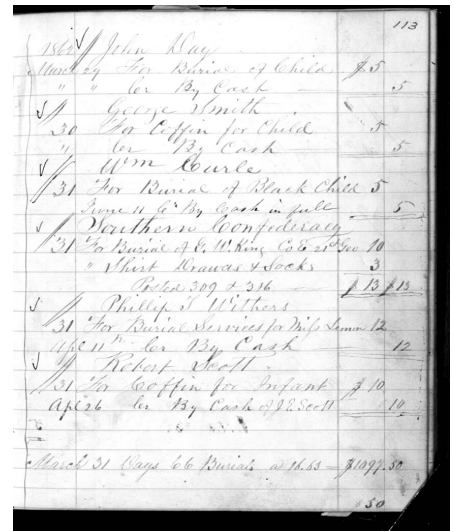 113
1862 John Day
March 29 For Burial of Child $ 5
" " Cr By Cash 5
George Smith
30 For Coffin for Child 5
" Cr By Cash 5
Wm Curle
31 For Burial of Black Child 5
June 11 Cr By Cash in full 5
Southern Confederacy
31 For Burial of G. W. King Co E 21st Geo 10
" Shirt Drawers & Socks 3
Posted 309 & 316 $ 13 $ 13
Phillip T Withers
31 For Burial Services for Miss 12
Apl 11th Cr By Cash 12
Robert Scott
31 For Coffin for Infant $ 10
Apl 26 Cr By Cash of J E Scott 10
March 31 Days 66 Burials $1097.50
50